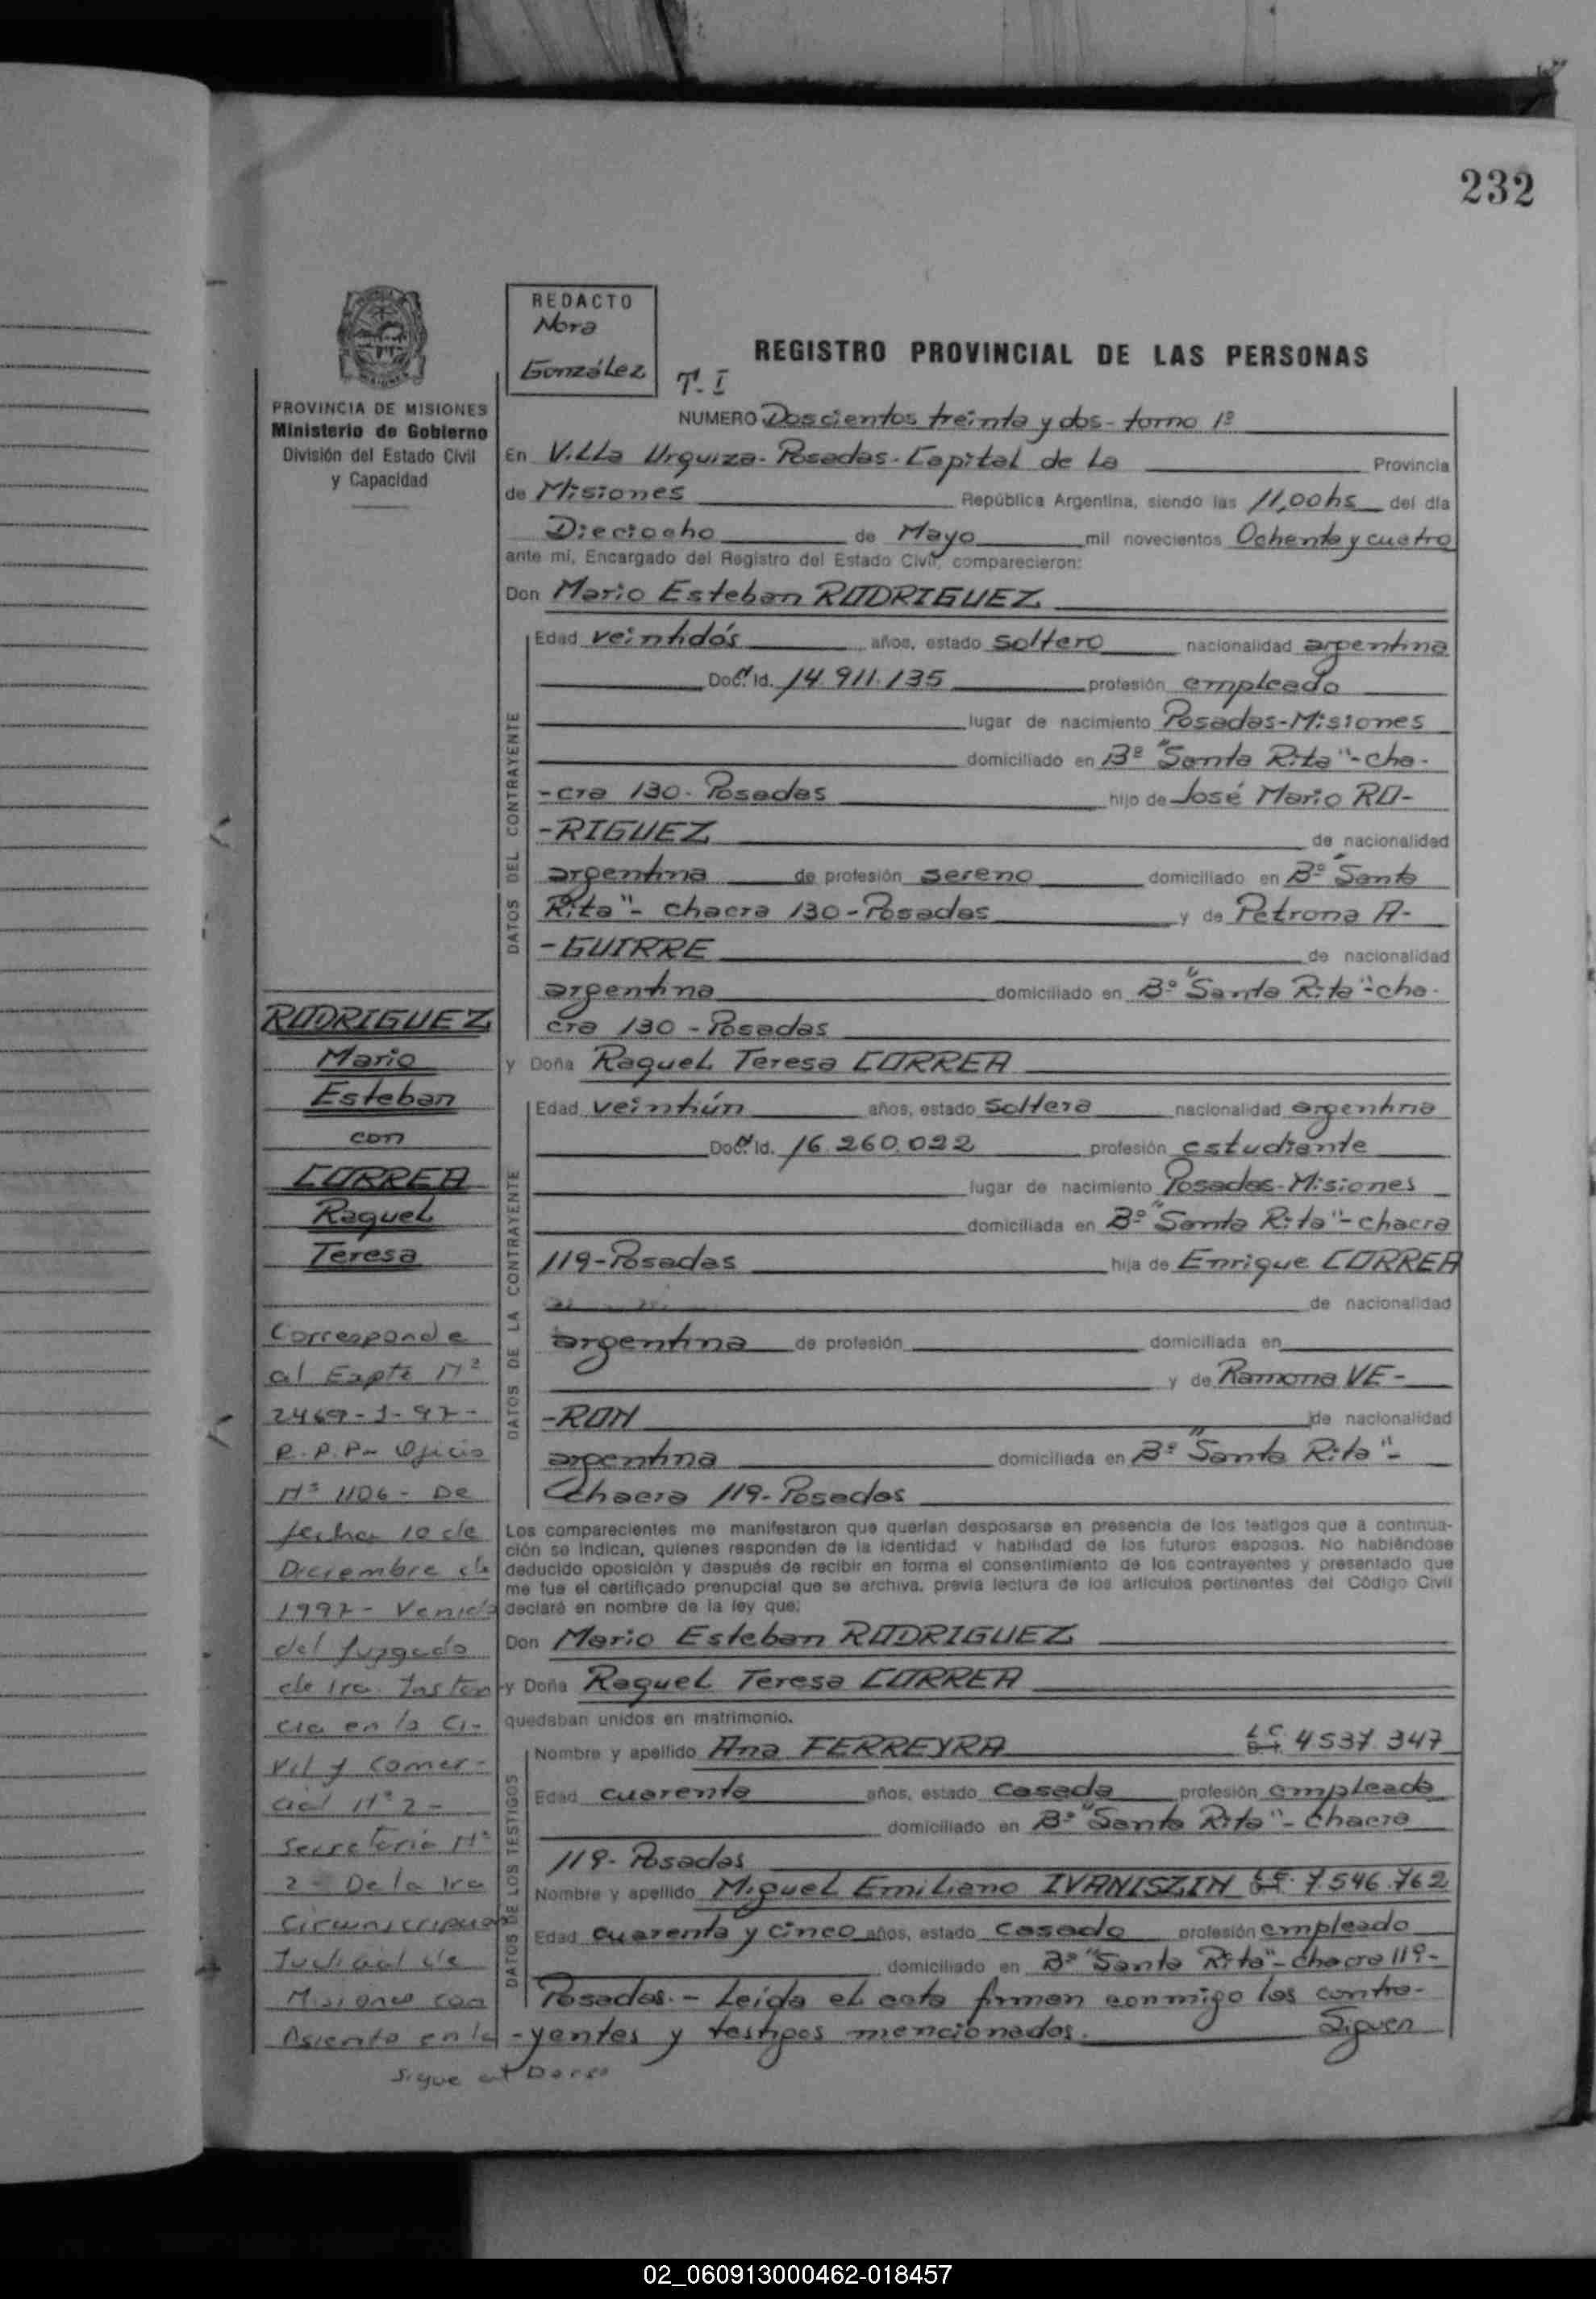 232
REDACTO
Nora
González
REGISTRO PROVINCIAL DE LAS PERSONAS
T. I
PROVINCIA DE MISIONES
Ministerio de Gobierno
División del Estado Civil
y Capacidad
NUMERO Doscientos treinta y dos - tomo 1º
En Villa Urquiza - Posadas - Capital de La Provincia
de Misiones República Argentina, siendo las 11,00hs del día
Dieciocho de Mayo mil novecientos Ochenta y cuatro
ante mí, Encargado del Registro del Estado Civil, comparecieron:
Don Mario Esteban RODRIGUEZ
DATOS DEL CONTRAYENTE
Edad veintidós años, estado soltero nacionalidad argentina
Doc. Id. 14.911.135 profesión empleado
lugar de nacimiento Posadas-Misiones
domiciliado en Bº "Santa Rita"-cha-
-cra 130- Posadas hijo de José Mario RO-
-RIGUEZ de nacionalidad
argentina de profesión sereno domiciliado en Bº "Santa
Rita"- chacra 130-Posadas y de Petrona A-
-GUIRRE de nacionalidad
argentina domiciliado en Bº "Santa Rita"-cha-
cra 130 - Posadas
y Doña Raquel Teresa CORREA
DATOS DE LA CONTRAYENTE
Edad veintiún años, estado soltera nacionalidad argentina
Doc. Id. 16.260.022 profesión estudiante
lugar de nacimiento Posadas-Misiones
domiciliada en Bº "Santa Rita"-chacra
119-Posadas hija de Enrique CORREA
de nacionalidad
argentina de profesión domiciliada en
y de Ramona VE-
-RON de nacionalidad
argentina domiciliada en Bº "Santa Rita"-
Chacra 119-Posadas
Los comparecientes me manifestaron que querían desposarse en presencia de los testigos que a continua-
ción se indican, quienes responden de la identidad y habilidad de los futuros esposos. No habiéndose
deducido oposición y después de recibir en forma el consentimiento de los contrayentes y presentado que
me fue el certificado prenupcial que se archiva, previa lectura de los artículos pertinentes del Código Civil
declaré en nombre de la ley que:
Don Mario Esteban RODRIGUEZ
y Doña Raquel Teresa CORREA
quedaban unidos en matrimonio.
DATOS DE LOS TESTIGOS
Nombre y apellido Ana FERREYRA LC 4537.347
Edad cuarenta años, estado casada profesión empleada
domiciliado en Bº "Santa Rita"-Chacra
119- Posadas
Nombre y apellido Miguel Emiliano IVANISZIN L.E. 7.546.762
Edad cuarenta y cinco años, estado casado profesión empleado
domiciliado en Bº "Santa Rita"-chacra 119-
Posadas.- Leída el acta firman conmigo los contra-
-yentes y testigos mencionados. Siguen
RODRIGUEZ
Mario
Esteban
con
CORREA
Raquel
Teresa
Corresponde
al Expte Nº
2469-J-97-
R.P.P- Oficio
Nº 1106- De
fecha 10 de
Diciembre de
1997- Venido
del Juzgado
de 1ra. Instan
cia en lo Ci-
vil y Comer-
cial Nº 2-
Secretaría Nº
2- De la 1ra
Circunscripción
Judicial de
Misiones con
Asiento en la
Sigue al Dorso
02_060913000462-018457